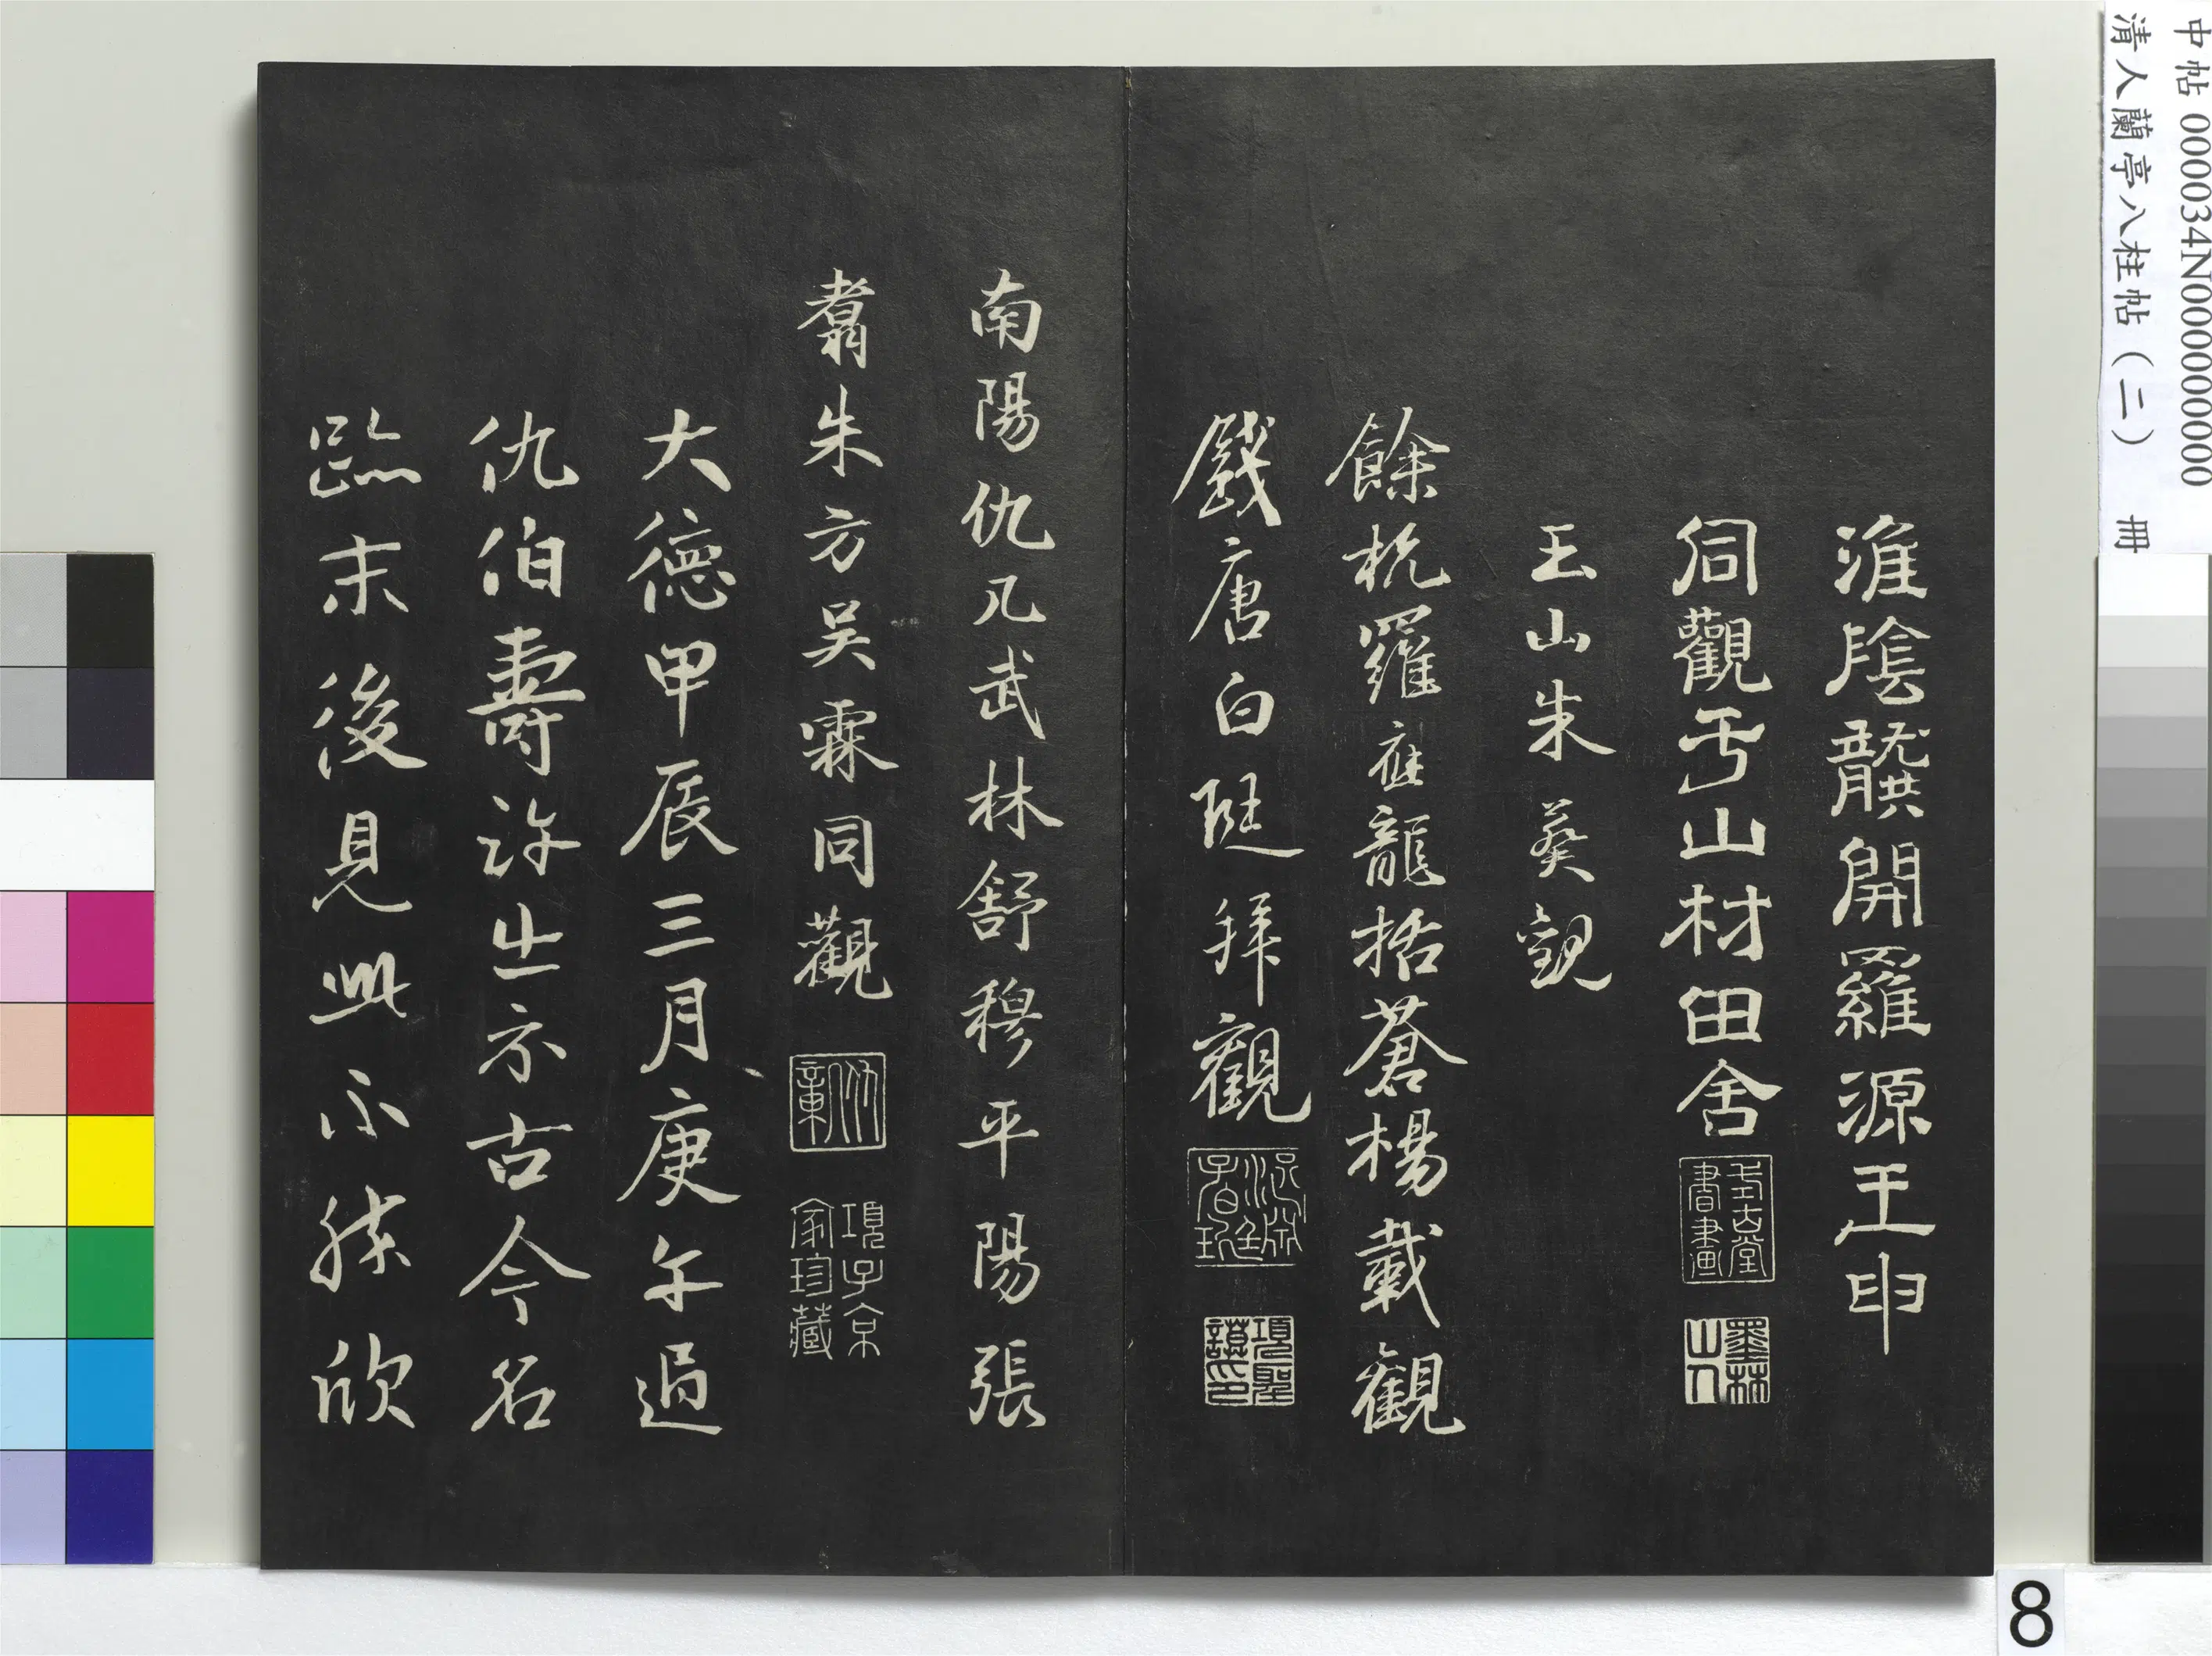 淮陰龔開羅源王申
同觀于山村田舍
式古堂書畫
墨林山人
玉山朱葵觀
餘杭羅應龍括蒼楊載觀
錢唐白珽拜觀
南陽仇几武林舒穆平陽張
翥朱方吳霖同觀
項子京家珍藏
大德甲辰三月庚午過
仇伯壽許出示古今名
臨末後見此不勝欣
中帖 000034N000000000
清人蘭亭八柱帖(二) 冊
8